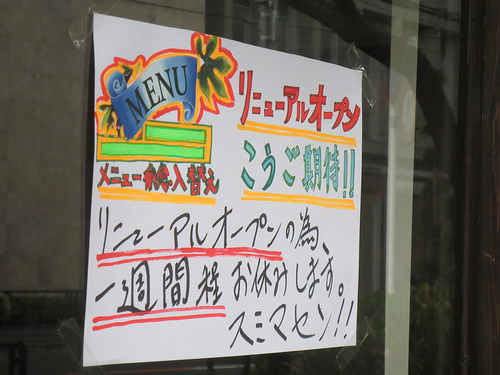 MENU
メニュー総入替え
リニューアルオープン
こうご期待!!
リニューアルオープンの為、
一週間程お休みします。
スミマセン!!